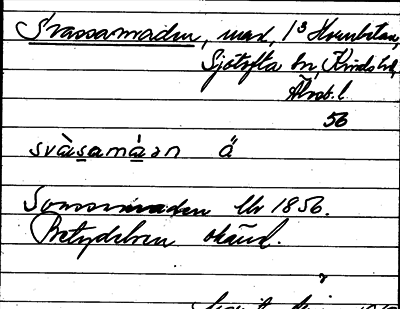 Svassamaden, mad, 1/3 Hornbetan,
Sjötofta sn, Kinds hd,
Älvsb. l.
56
svàsamáan ä
Svassmaden Uv 1856.
Betydelsen okänd.